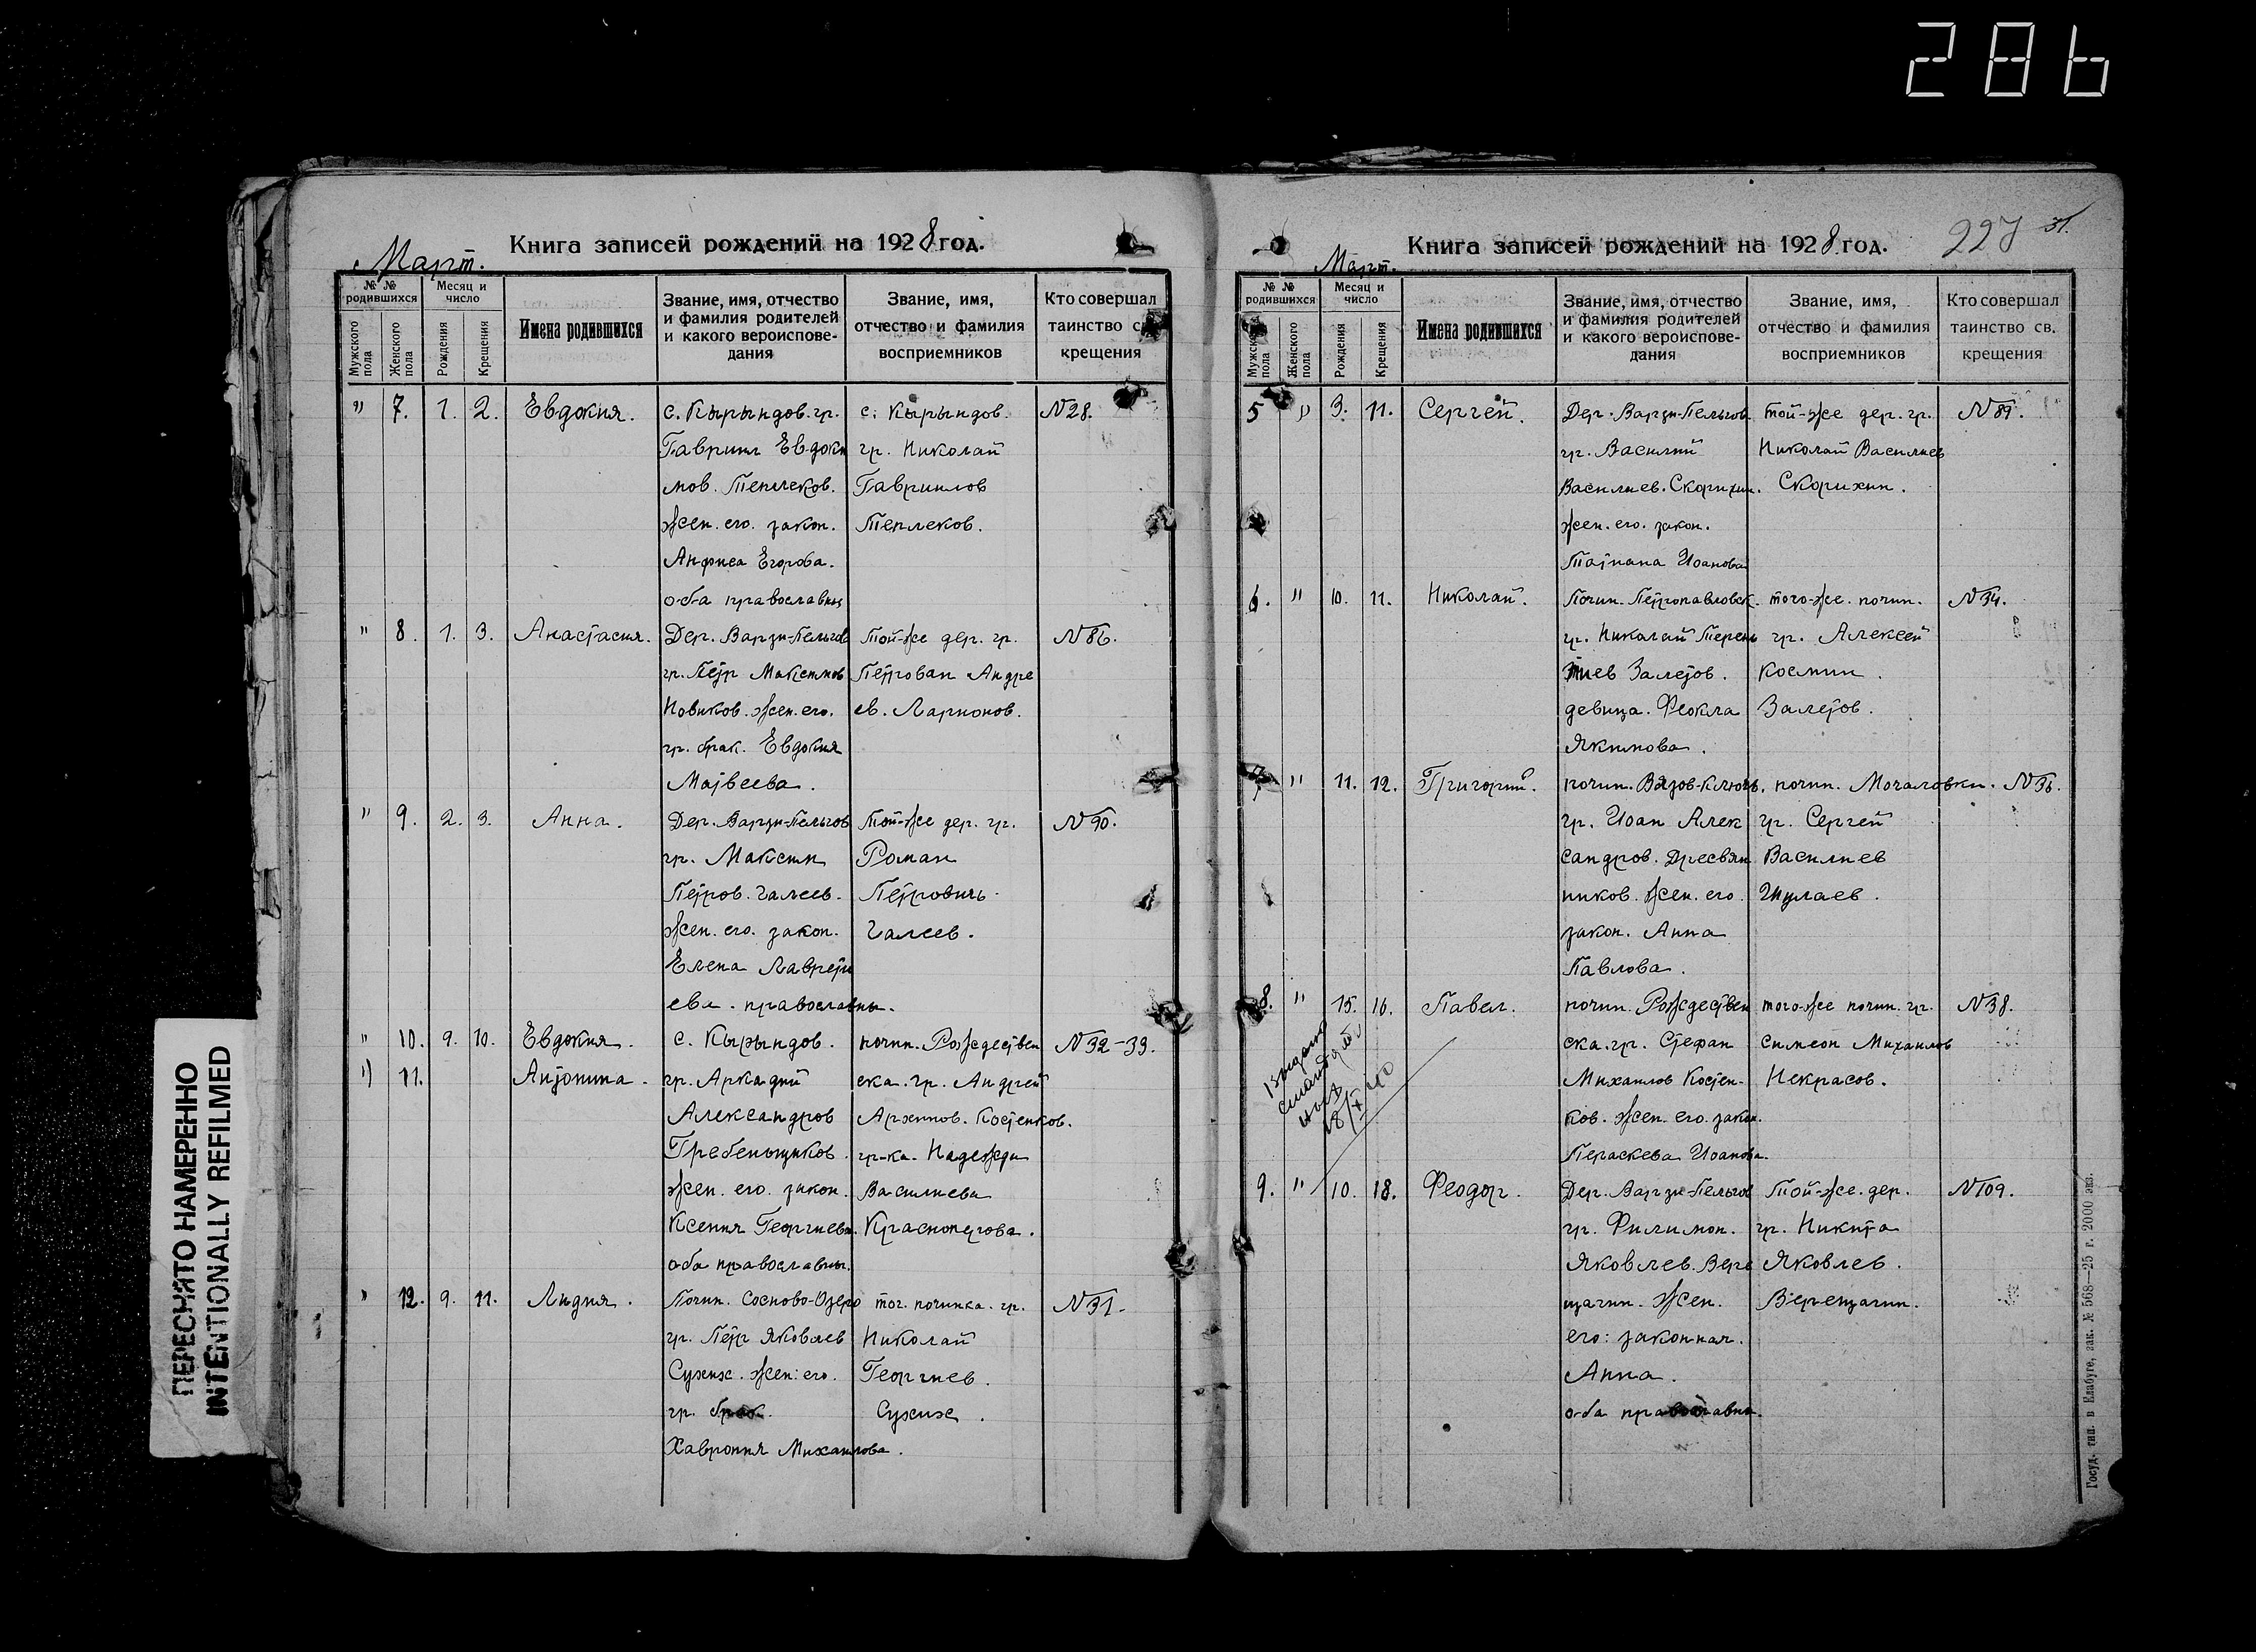 286
ПЕРЕСНЯТО НАМЕРЕННО
INTENTIONALLY REFILMED
Март.
Книга записей рождений на 1928 год.
№ № родившихся
Мужского пола
Женского пола
Месяц и число
Рождения
Крещения
Имена родившихся
Звание, имя, отчество и фамилия родителей и какого вероисповедания
Звание, имя, отчество и фамилия восприемников
Кто совершал таинство св. крещения
" 7. 1. 2. Евдокия. с. Кырындов. гр. с. Кырындов. N28.
Гавриил Евдоки гр. Николай
мов. Теплеков. Гавриилов
жен. его. закон. Теплеков.
Анфиса Егорова.
оба православны
" 8. 1. 3. Анастасия. Дер. Варзи-Пельгов Той-же дер. гр. N86.
гр. Петр Максимов Петрован Андре
Новиков. жен. его. ев. Ларионов.
гр. брак. Евдокия
Матвеева.
" 9. 2. 3. Анна. Дер. Варзи-Пельгов Той-же дер. гр. N90.
гр. Максим Роман
Петров. Галеев. Петровичь.
жен. его. закон. Галеев.
Елена Лаврети
ева. православны.
" 10. 9. 10. Евдокия. с. Кырындов. почин. Рождествен N32-33.
" 11. Антонина. гр. Аркадий ска. гр. Андрей
Александров Архипов. Костенков.
Гребеньщиков. гр-ка. Надежди
жен. его. закон. Василиева
Ксения Георгиева. Красноперова.
оба православны.
" 12. 9. 11. Лидия. Почин. Сосново-Озеро тог. починка. гр. N31.
гр. Петр Яковлев Николай
Сухих. жен. его. Георгиев.
гр. брак. Сухих.
Хаврония Михаилова.
227
31.
Март.
Книга записей рождений на 1928 год.
№ № родившихся
Мужского пола
Женского пола
Месяц и число
Рождения
Крещения
Имена родившихся
Звание, имя, отчество и фамилия родителей и какого вероисповедания
Звание, имя, отчество и фамилия восприемников
Кто совершал таинство св. крещения
5 " 9. 11. Сергей. Дер. Варзи-Пельгов той-же дер. гр. N89.
гр. Василий Николай Василиев
Василиев. Скорихин. Скорихин.
жен. его. закон.
Татиана Иоанова
6. " 10. 11. Николай. Почин. Петропавловск. того-же. почин. N34.
гр. Николай Терень гр. Алексей
тиев Залетов. Космин.
девица. Фекла Залетов.
Якимова.
7 " 11. 12. Григорий. почин. Вязов-Ключь. почин. Мочаловки. N36.
гр. Иоан Алек гр. Сергей
сандров. Дресвян Василиев
ников. жен. его.
закон. Анна
Павлова.
8. " 15. 16. Павел. почин. Рождествен того-же почин. гр. N38.
ска. гр. Стефан Симеон Михаилов
Михаилов Костен- Некрасов.
ков. жен. его. закон.
Пераскева Иоанова.
9. " 10. 18. Феодор. Дер. Варзи-Пельгов Той-же. дер. N109.
гр. Филимон. гр. Никита
Яковлев. Вере Яковлев.
щагин. жен. Верещагин.
его: законная.
Анна.
оба православны.
Госуд. тип. в Елабуге, зак. № 568—25 г. 2000 экз.